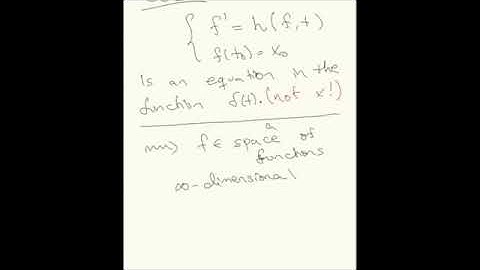 { f' = h(f,t)
f(t₀) = x₀
Is an equation in the
function f(t). (not x!)
⇝ f ∈ a space of
functions
∞-dimensional